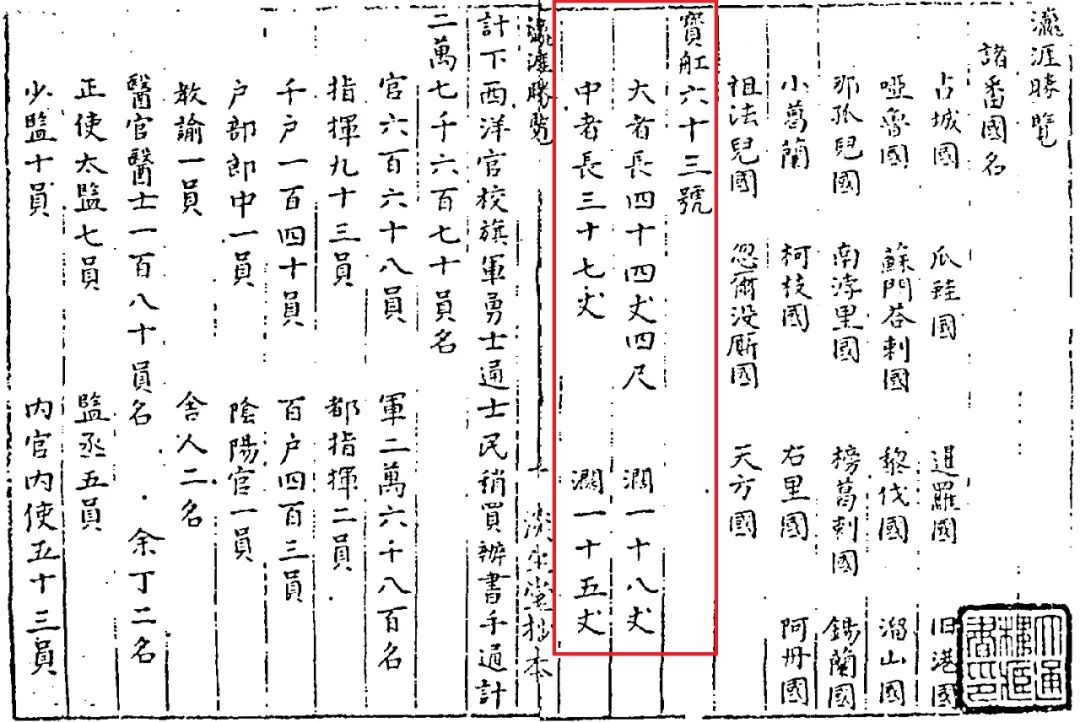 瀛涯勝覽
諸畨國名
占城國 爪哇國 暹羅國 旧港國
啞魯國 蘇門荅剌國 黎伐國 溜山國
那孤兒國 南浡里國 榜葛剌國 錫蘭國
小葛蘭 柯枝國 古里國 阿丹國
祖法兒國 忽爾没厮國 天方國
寳舡六十三號
大者長四十四丈四尺 濶一十八丈
中者長三十七丈 濶一十五丈
瀛涯勝覽 淡生堂抄本
計下西洋官校旗軍勇士通士民稍買辦書手通計
二萬七千六百七十員名
官六百六十八員 軍二萬六千八百名
指揮九十三員 都指揮二員
千户一百四十員 百户四百三員
户部郎中一員 陰陽官一員
教諭一員 舎人二名
醫官醫士一百八十員名 余丁二名
正使太監七員 監丞五員
少監十員 内官内使五十三員